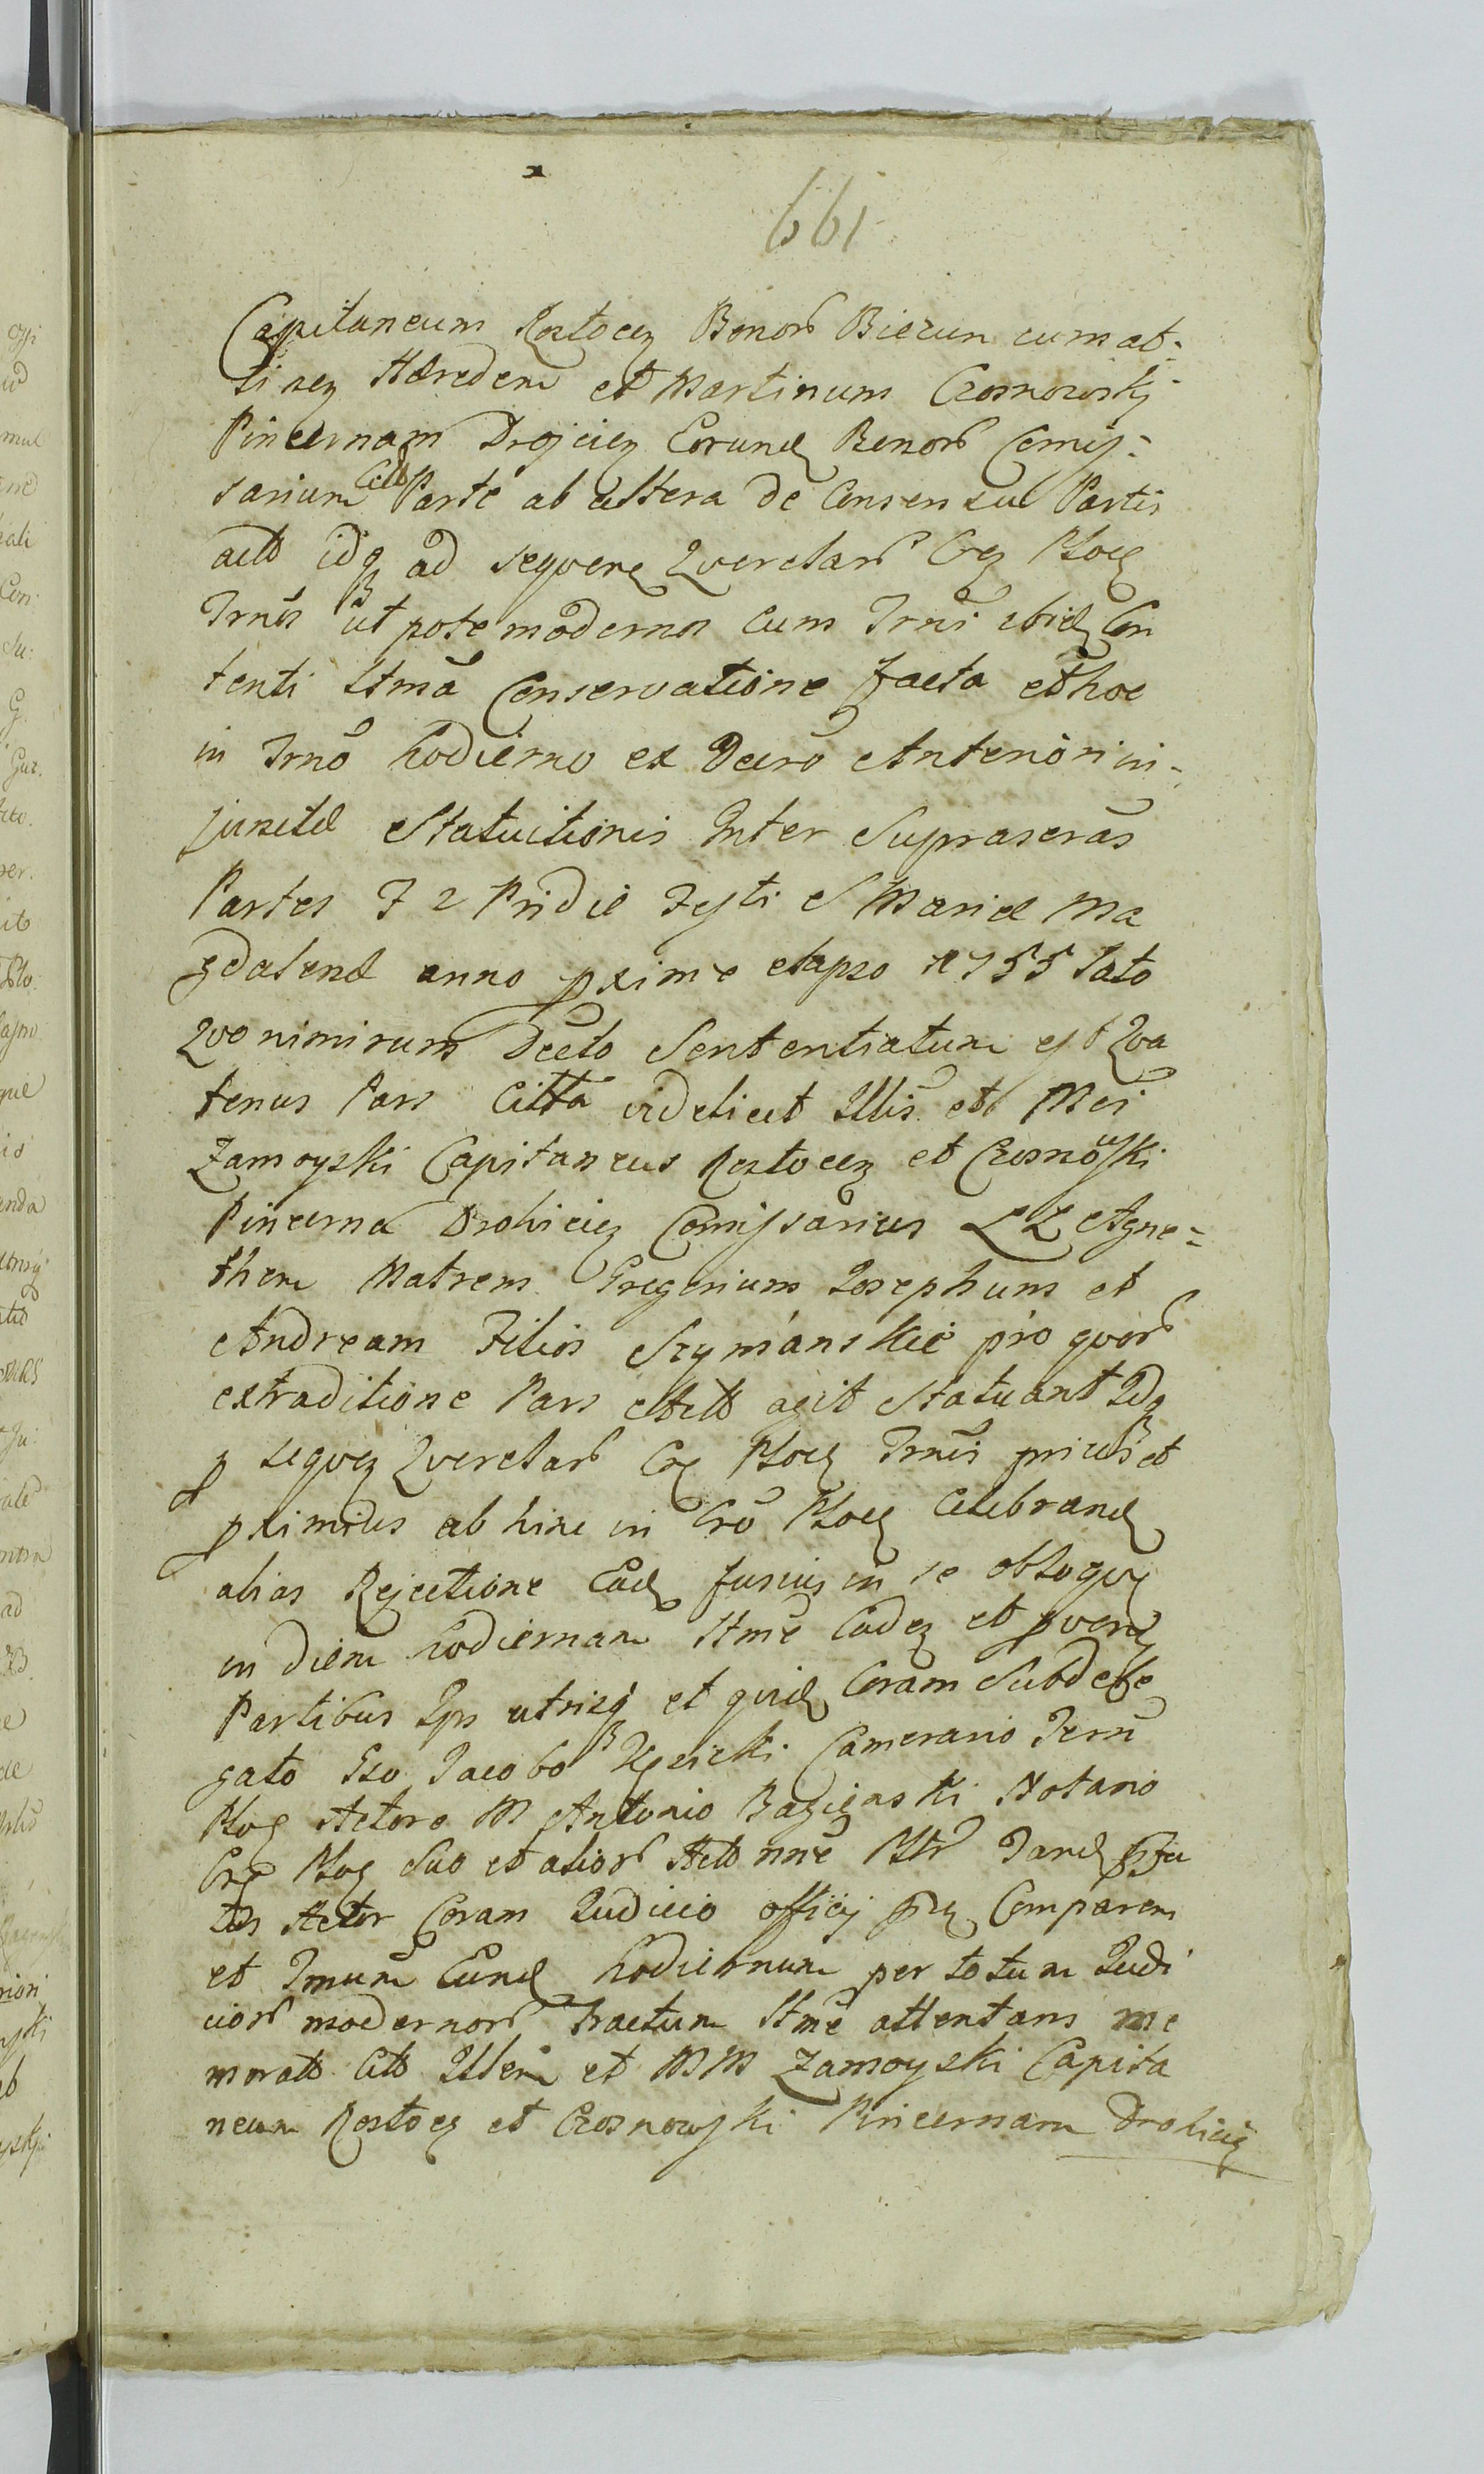 661
Capitaneum Rostocen Bonor Biezun cum at-
tinen Hæredem et Martinum Czosnowskj
Pincernam Drojicien Eorund Bonor Comis-
sarium Citt Parte ab altera de Consensu Partis
actt idq ad sequen Querelar Cx Ploc
Trnos ut pote modernos cum Trni ibid Con
tenti Ltma Conservatione facta et hoc
in Trno hodierno ex Decro Anteriori in-
junctæ Statuitionis Inter Suprascras
Partes F 2 Pridie Festi S Mariæ Ma
gdalenæ anno pxime elapso 1755 lato
Quo nimirum Decto Sententiatum est Qua
tenus Pars Citta videlicet Illis et Mci
Zamoyski Capitaneus Rostocen et Czosnowski
Pincerna Drohicien Comissarius LL Agne-
them Matrem Gregorium Josephum et
Andream Filios Szymanskie pro quor
extraditione Pars Actt agit Statuant Idq
p sequen Querelar Cx Ploc Trnis prius et
pximius ab hinc in Cro Ploc Celebrand
alias Rejectione Ead fusius in se obloquen
in diem hodiernam Ltme Caden et pven
Partibus Ips utrisq et quid Coram Subdele
gato Gso Jacobo Kęsicki Camerario Terri
Ploc Actore M Antonio Bagieński Notario
Cx Ploc Suo et alior Actt nne Pltr Tand pfa
tus Actor Coram Judicio officij pn Comparens
et Trnum Eund hodiernum per totum Judi
cior modernor Tractum Ltme attentans me
moratt Citt Illem et MM Zamoyski Capita
neum Rostoc et Czosnowski Pincernam Drohicien